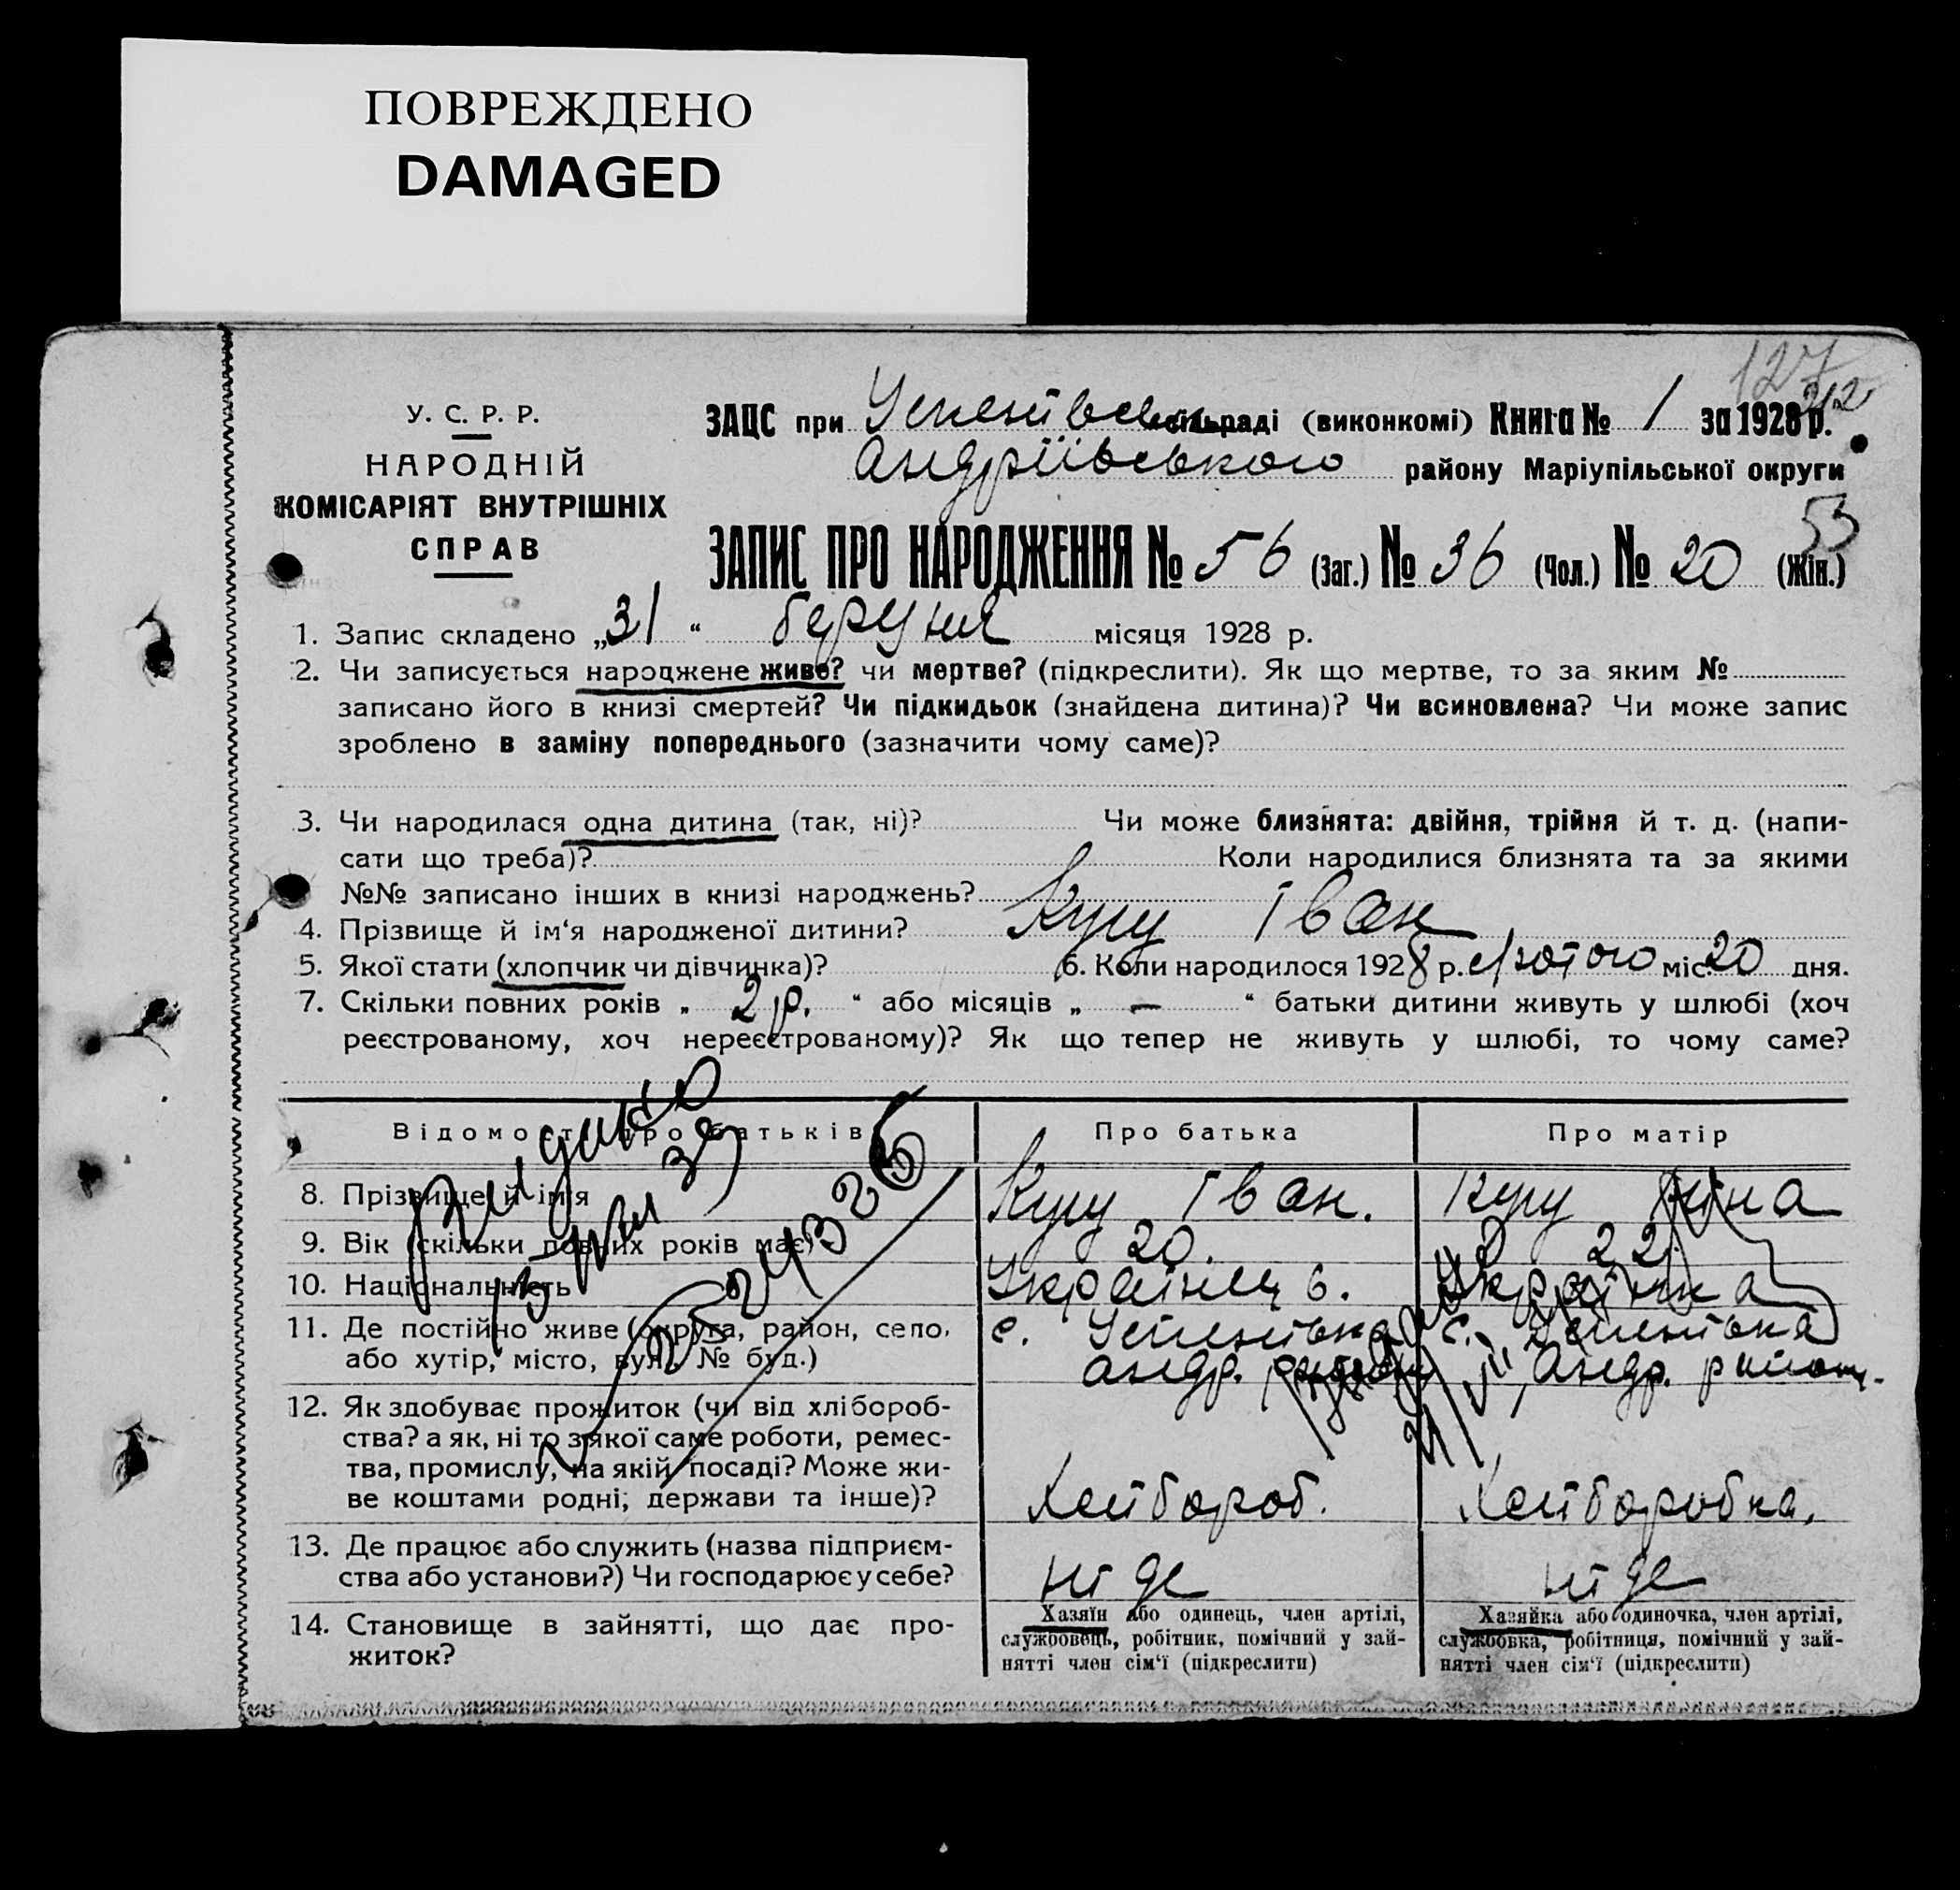 ПОВРЕЖДЕНО
DAMAGED
127
212
У. С. Р. Р.
НАРОДНІЙ
КОМІСАРІЯТ ВНУТРІШНІХ
СПРАВ
ЗАЦС при Успенівськ сільраді (виконкомі) Книга № 1 за 1928 р.
Андріївського району Маріупільської округи
53
ЗАПИС ПРО НАРОДЖЕННЯ № 56 (Заг.) № 36 (Чол.) № 20 (Жін.)
1. Запис складено „31“ березня місяця 1928 р.
2. Чи записується народжене живе? чи мертве? (підкреслити). Як що мертве, то за яким №
записано його в книзі смертей? Чи підкидьок (знайдена дитина)? Чи всиновлена? Чи може запис
зроблено в заміну попереднього (зазначити чому саме)?
3. Чи народилася одна дитина (так, ні)? Чи може близнята: двійня, трійня й т. д. (напи-
сати що треба)? Коли народилися близнята та за якими
№№ записано інших в книзі народжень?
4. Прізвище й ім‘я народженої дитини? Куцу Іван
5. Якої стати (хлопчик чи дівчинка)? 6. Коли народилося 1928 р. лютого міс. 20 дня.
7. Скільки повних років „ 2 р. “ або місяців „ — “ батьки дитини живуть у шлюбі (хоч
реєстрованому, хоч нереєстрованому)? Як що тепер не живуть у шлюбі, то чому саме?
Відомості про батьків Про батька Про матір
8. Прізвище й ім‘я Куцу Іван. Куцу
9. Вік (скільки повних років має) 20. 22
10. Національність Українець. Українка
11. Де постійно живе (округа, район, село, с. Успенівка с. Успенівка
або хутір, місто, вул. № буд.) Андр. району Андр. району.
12. Як здобуває прожиток (чи від хлібороб-
ства? а як, ні то з якої саме роботи, ремес-
тва, промислу, на якій посаді? Може жи-
ве коштами родні, держави та інше)? Хлібороб. Хліборобка.
13. Де працює або служить (назва підприєм-
ства або установи?) Чи господарює у себе? ніде ніде
14. Становище в зайнятті, що дає про-
житок?
Хазяїн або одинець, член артілі,
службовець, робітник, помічний у зай-
нятті член сім‘ї (підкреслити)
Хазяйка або одиночка, член артілі,
службовка, робітниця, помічний у зай-
нятті член сім‘ї (підкреслити)